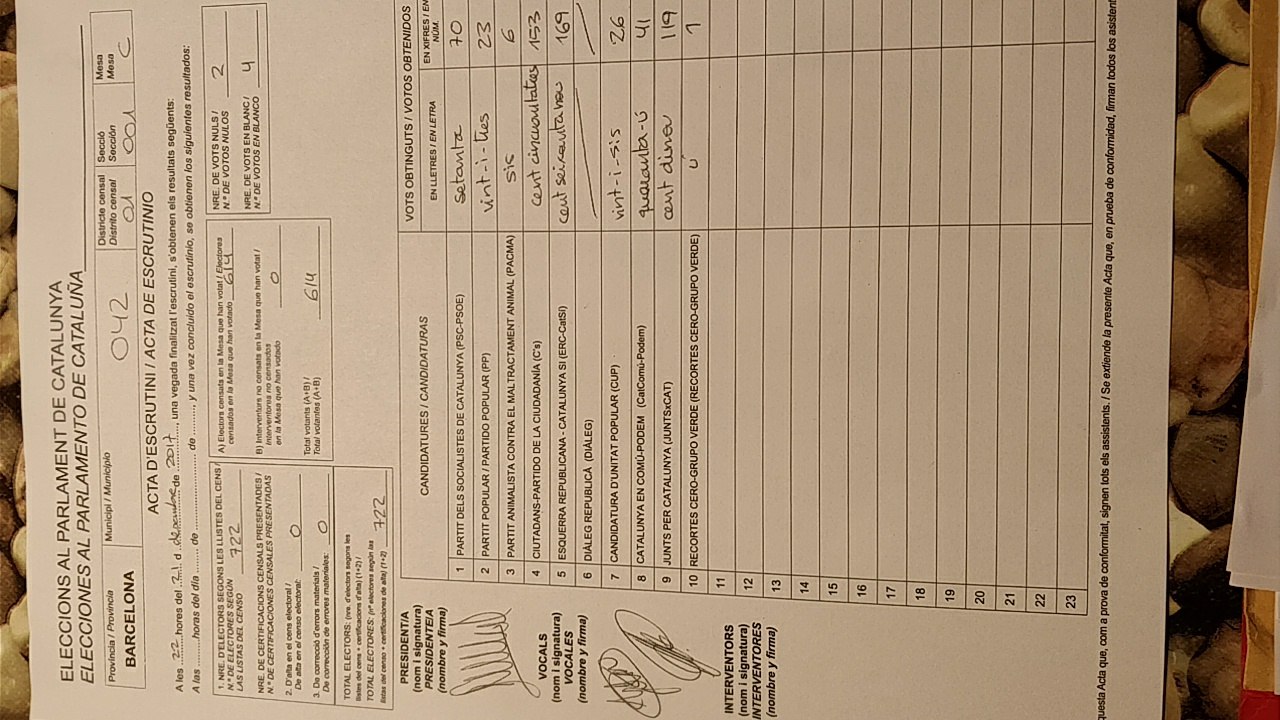 ELECCIONS AL PARLAMENT DE CATALUNYA
ELECCIONES AL PARLAMENTO DE CATALUÑA
Província / Provincia
BARCELONA
Municipi / Municipio
042
Districte censal
Distrito censal
01
Secció
Sección
001
Mesa
Mesa
C
ACTA D'ESCRUTINI / ACTA DE ESCRUTINIO
A les 22 hores del 21 d desembre de 2017, una vegada finalitzat l'escrutini, s'obtenen els resultats següents:
A las ........ horas del día ........ de ........ de ........, y una vez concluido el escrutinio, se obtienen los siguientes resultados:
1. NRE. D'ELECTORS SEGONS LES LLISTES DEL CENS /
N.º DE ELECTORES SEGÚN
LAS LISTAS DEL CENSO 722
NRE. DE CERTIFICACIONS CENSALS PRESENTADES /
N.º DE CERTIFICACIONES CENSALES PRESENTADAS
2. D'alta en el cens electoral /
De alta en el censo electoral: 0
3. De correcció d'errors materials /
De corrección de errores materiales: 0
TOTAL ELECTORS: (nre. d'electors segons les
llistes del cens + certificacions d'alta) (1+2) /
TOTAL ELECTORES: (nº electores según las
listas del censo + certificaciones de alta) (1+2) 722
A) Electors censats en la Mesa que han votat / Electores
censados en la Mesa que han votado 614
B) Interventors no censats en la Mesa que han votat /
Interventores no censados
en la Mesa que han votado 0
Total votants (A+B) /
Total votantes (A+B) 614
NRE. DE VOTS NULS /
N.º DE VOTOS NULOS 2
NRE. DE VOTS EN BLANC /
N.º DE VOTOS EN BLANCO 4
PRESIDENT/A
(nom i signatura)
PRESIDENTE/A
(nombre y firma)
VOCALS
(nom i signatura)
VOCALES
(nombre y firma)
INTERVENTORS
(nom i signatura)
INTERVENTORES
(nombre y firma)
CANDIDATURES / CANDIDATURAS
VOTS OBTINGUTS / VOTOS OBTENIDOS
EN LLETRES / EN LETRA
EN XIFRES / EN
NÚM.
1 PARTIT DELS SOCIALISTES DE CATALUNYA (PSC-PSOE) setanta 70
2 PARTIT POPULAR / PARTIDO POPULAR (PP) vint-i-tres 23
3 PARTIT ANIMALISTA CONTRA EL MALTRACTAMENT ANIMAL (PACMA) sis 6
4 CIUTADANS-PARTIDO DE LA CIUDADANÍA (C's) cent cincuantatres 153
5 ESQUERRA REPUBLICANA - CATALUNYA SÍ (ERC-CatSí) cent seixantanou 169
6 DIÀLEG REPUBLICÀ (DIÀLEG)
7 CANDIDATURA D'UNITAT POPULAR (CUP) vint-i-sis 26
8 CATALUNYA EN COMÚ-PODEM (CatComú-Podem) quaranta-ú 41
9 JUNTS PER CATALUNYA (JUNTSxCAT) cent dinou 119
10 RECORTES CERO-GRUPO VERDE (RECORTES CERO-GRUPO VERDE) ú 1
11
12
13
14
15
16
17
18
19
20
21
22
23
questa Acta que, com a prova de conformitat, signen tots els assistents. / Se extiende la presente Acta que, en prueba de conformidad, firman todos los asistent